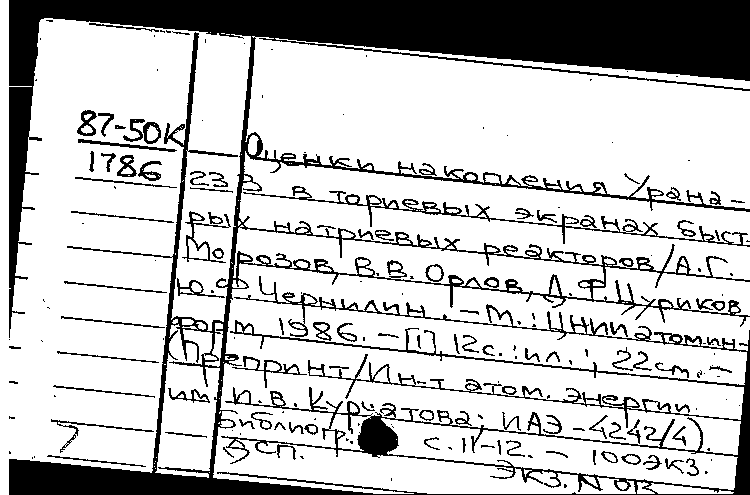 87-50К
1786
Оценки накопления Урана-
233 в ториевых экранах быст-
рых натриевых реакторов/А.Г.
Морозов, В.В. Орлов, Д.Ф.Цуриков,
Ю.Ф.Чернилин. -М.:ЦНИИатомин-
форм, 1986. -[1], 12с.:ил.; 22см.-
(Препринт/Ин-т атом. энергии
им. И.В. Курчатова; ИАЭ-4242/4).
Библиогр.: с.11-12. - 100экз.
ДСП.
Экз. N 012